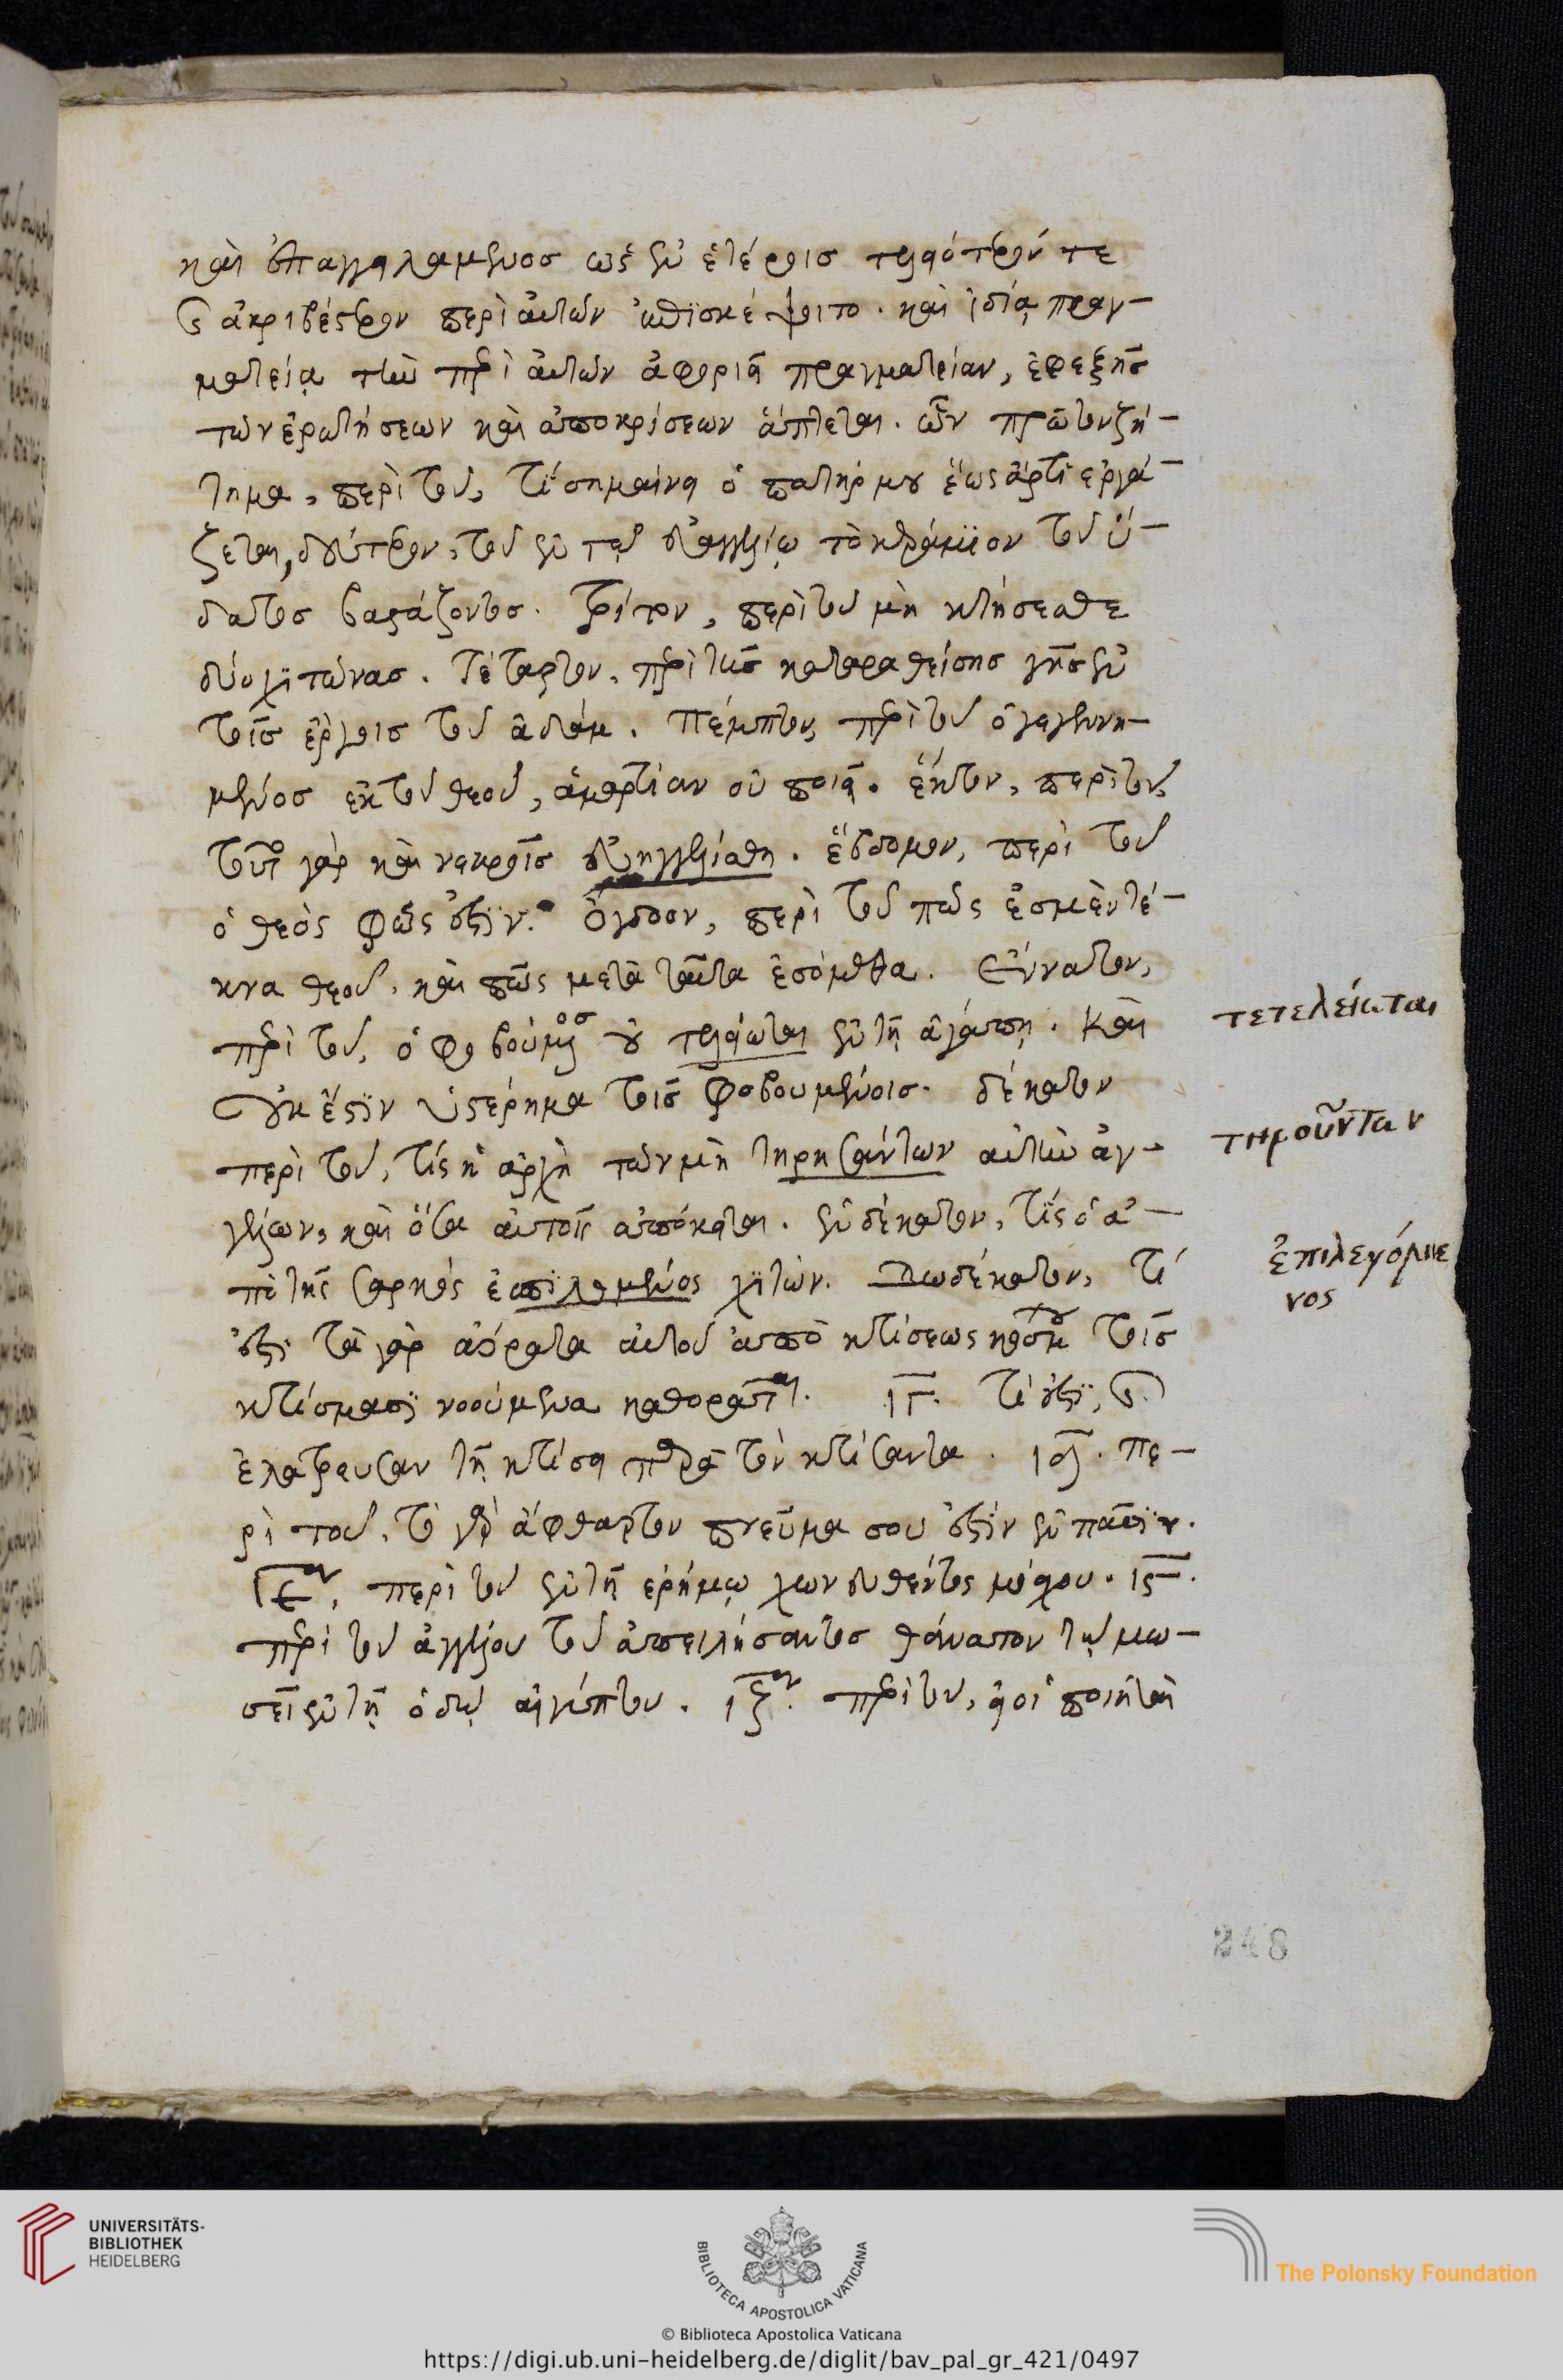 καὶ ἐπαγγειλάμενος ὡς ἐν ἑτέροις τελεότερόν τε
καὶ ἀκριβέστερον περὶ αὐτῶν ἐπισκέψοιτο. καὶ ἰδίᾳ πραγ-
ματείᾳ τὴν περὶ αὐτῶν ἀφοριεῖ πραγματείαν, ἐφεξῆς
τῶν ἐρωτήσεων καὶ ἀποκρίσεων ἅπτεται. ὧν πρῶτον ζή-
τημα, περὶ τοῦ, τί σημαίνει ὁ πατήρ μου ἕως ἄρτι ἐργά-
ζεται, δεύτερον, τοῦ ἐν τῷ εὐαγγελίῳ τὸ κεράμιον τοῦ ὕ-
δατος βαστάζοντος. Τρίτον, περὶ τοῦ μὴ κτήσεσθε
δύο χιτῶνας. Τέταρτον, περὶ τῆς καταραθείσης γῆς ἐν
τοῖς ἔργοις τοῦ ἀδάμ. Πέμπτον, περὶ τοῦ ὁ γεγενη-
μένος ἐκ τοῦ θεοῦ, ἁμαρτίαν οὐ ποιεῖ. ἕκτον, περὶ τοῦ,
τοῦτο γὰρ καὶ νεκροῖς εὐηγγελίσθη. ἕβδομον, περὶ τοῦ
ὁ θεὸς φῶς ἐστίν. Ὄγδοον, περὶ τοῦ πῶς ἐσμὲν τέ-
κνα θεοῦ, καὶ πῶς μετὰ ταῦτα ἐσόμεθα. Ἔννατον,
περὶ τοῦ, ὁ φοβούμενος οὐ τελείωται ἐν τῇ ἀγάπῃ. Καὶ
οὐκ ἔστιν ὑστέρημα τοῖς φοβουμένοις. δέκατον
περὶ τοῦ, τίς ἡ ἀρχὴ τῶν μὴ τηρησάντων αὐτὴν ἀγ-
γέλων, καὶ ὅσα αὐτοῖς ἀπόκειται. ἑνδέκατον, τίς ὁ ἀ-
πὸ τῆς σαρκὸς ἐσπιλωμένος χιτών. Δωδέκατον, τί
ἐστι τὰ γὰρ ἀόρατα αὐτοῦ ἀπὸ κτίσεως κόσμου τοῖς
κτίσμασι νοούμενα καθορᾶται. ΙΓ. Τί ἐστι, καὶ
ἐλάτρευσαν τῇ κτίσει παρὰ τὸν κτίσαντα. ιδ. πε-
ρὶ τοῦ, τὸ γὰρ ἄφθαρτον πνεῦμα σου ἐστὶν ἐν πᾶσιν.
ΙΕον, περὶ τοῦ ἐν τῇ ἐρήμῳ χωνευθέντος μόσχου. ις.
περὶ τοῦ ἀγγέλου τοῦ ἀπειλήσαντος θάνατον τῷ μω-
σεῖ ἐν τῇ ὁδῷ αἰγύπτου. ιζον. περὶ τοῦ, εἰ οἱ ποιηταὶ
τετελείωται
τηρούντων
ἐπιλεγόμε
νος
248
UNIVERSITÄTS-
BIBLIOTHEK
HEIDELBERG
BIBLIOTECA APOSTOLICA VATICANA
The Polonsky Foundation
© Biblioteca Apostolica Vaticana
https://digi.ub.uni-heidelberg.de/diglit/bav_pal_gr_421/0497